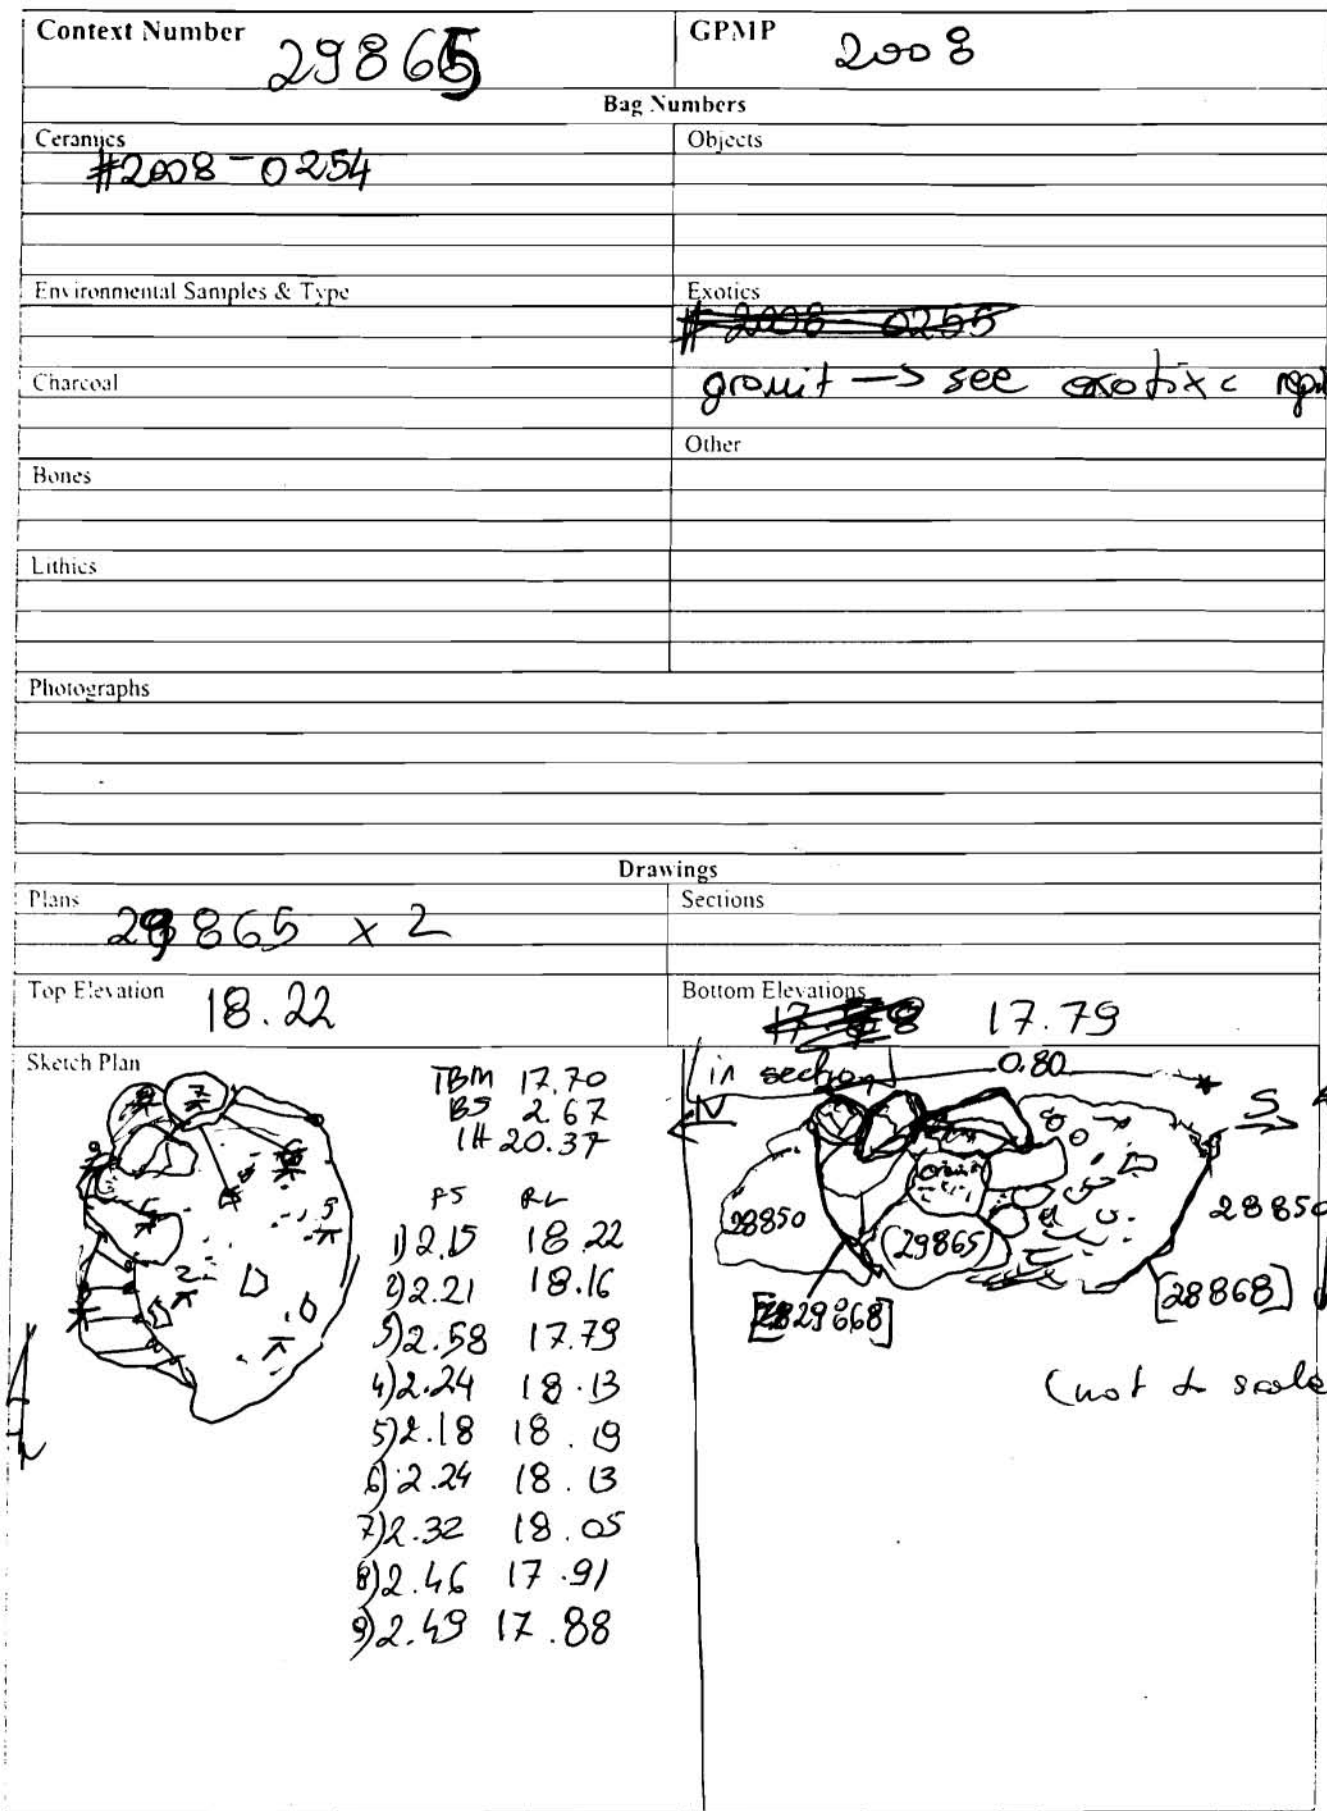 Context Number 29865
GPMP 2008
Bag Numbers
Ceramics
#2008-0254
Objects
Environmental Samples & Type
Exotics
# 2008-0255
granit -> see
Charcoal
Other
Bones
Lithics
Photographs
Drawings
Plans
29865 x 2
Sections
Top Elevation 18.22
Bottom Elevations
17.79
Sketch Plan
TBM 17.70
BS 2.67
IH 20.37
FS RL
1) 2.15 18.22
2) 2.21 18.16
3) 2.58 17.79
4) 2.24 18.13
5) 2.18 18.19
6) 2.24 18.13
7) 2.32 18.05
8) 2.46 17.91
9) 2.49 17.88
in section
0.80
N
S
28850
(29865)
28850
29868]
[28868]
(not to scale